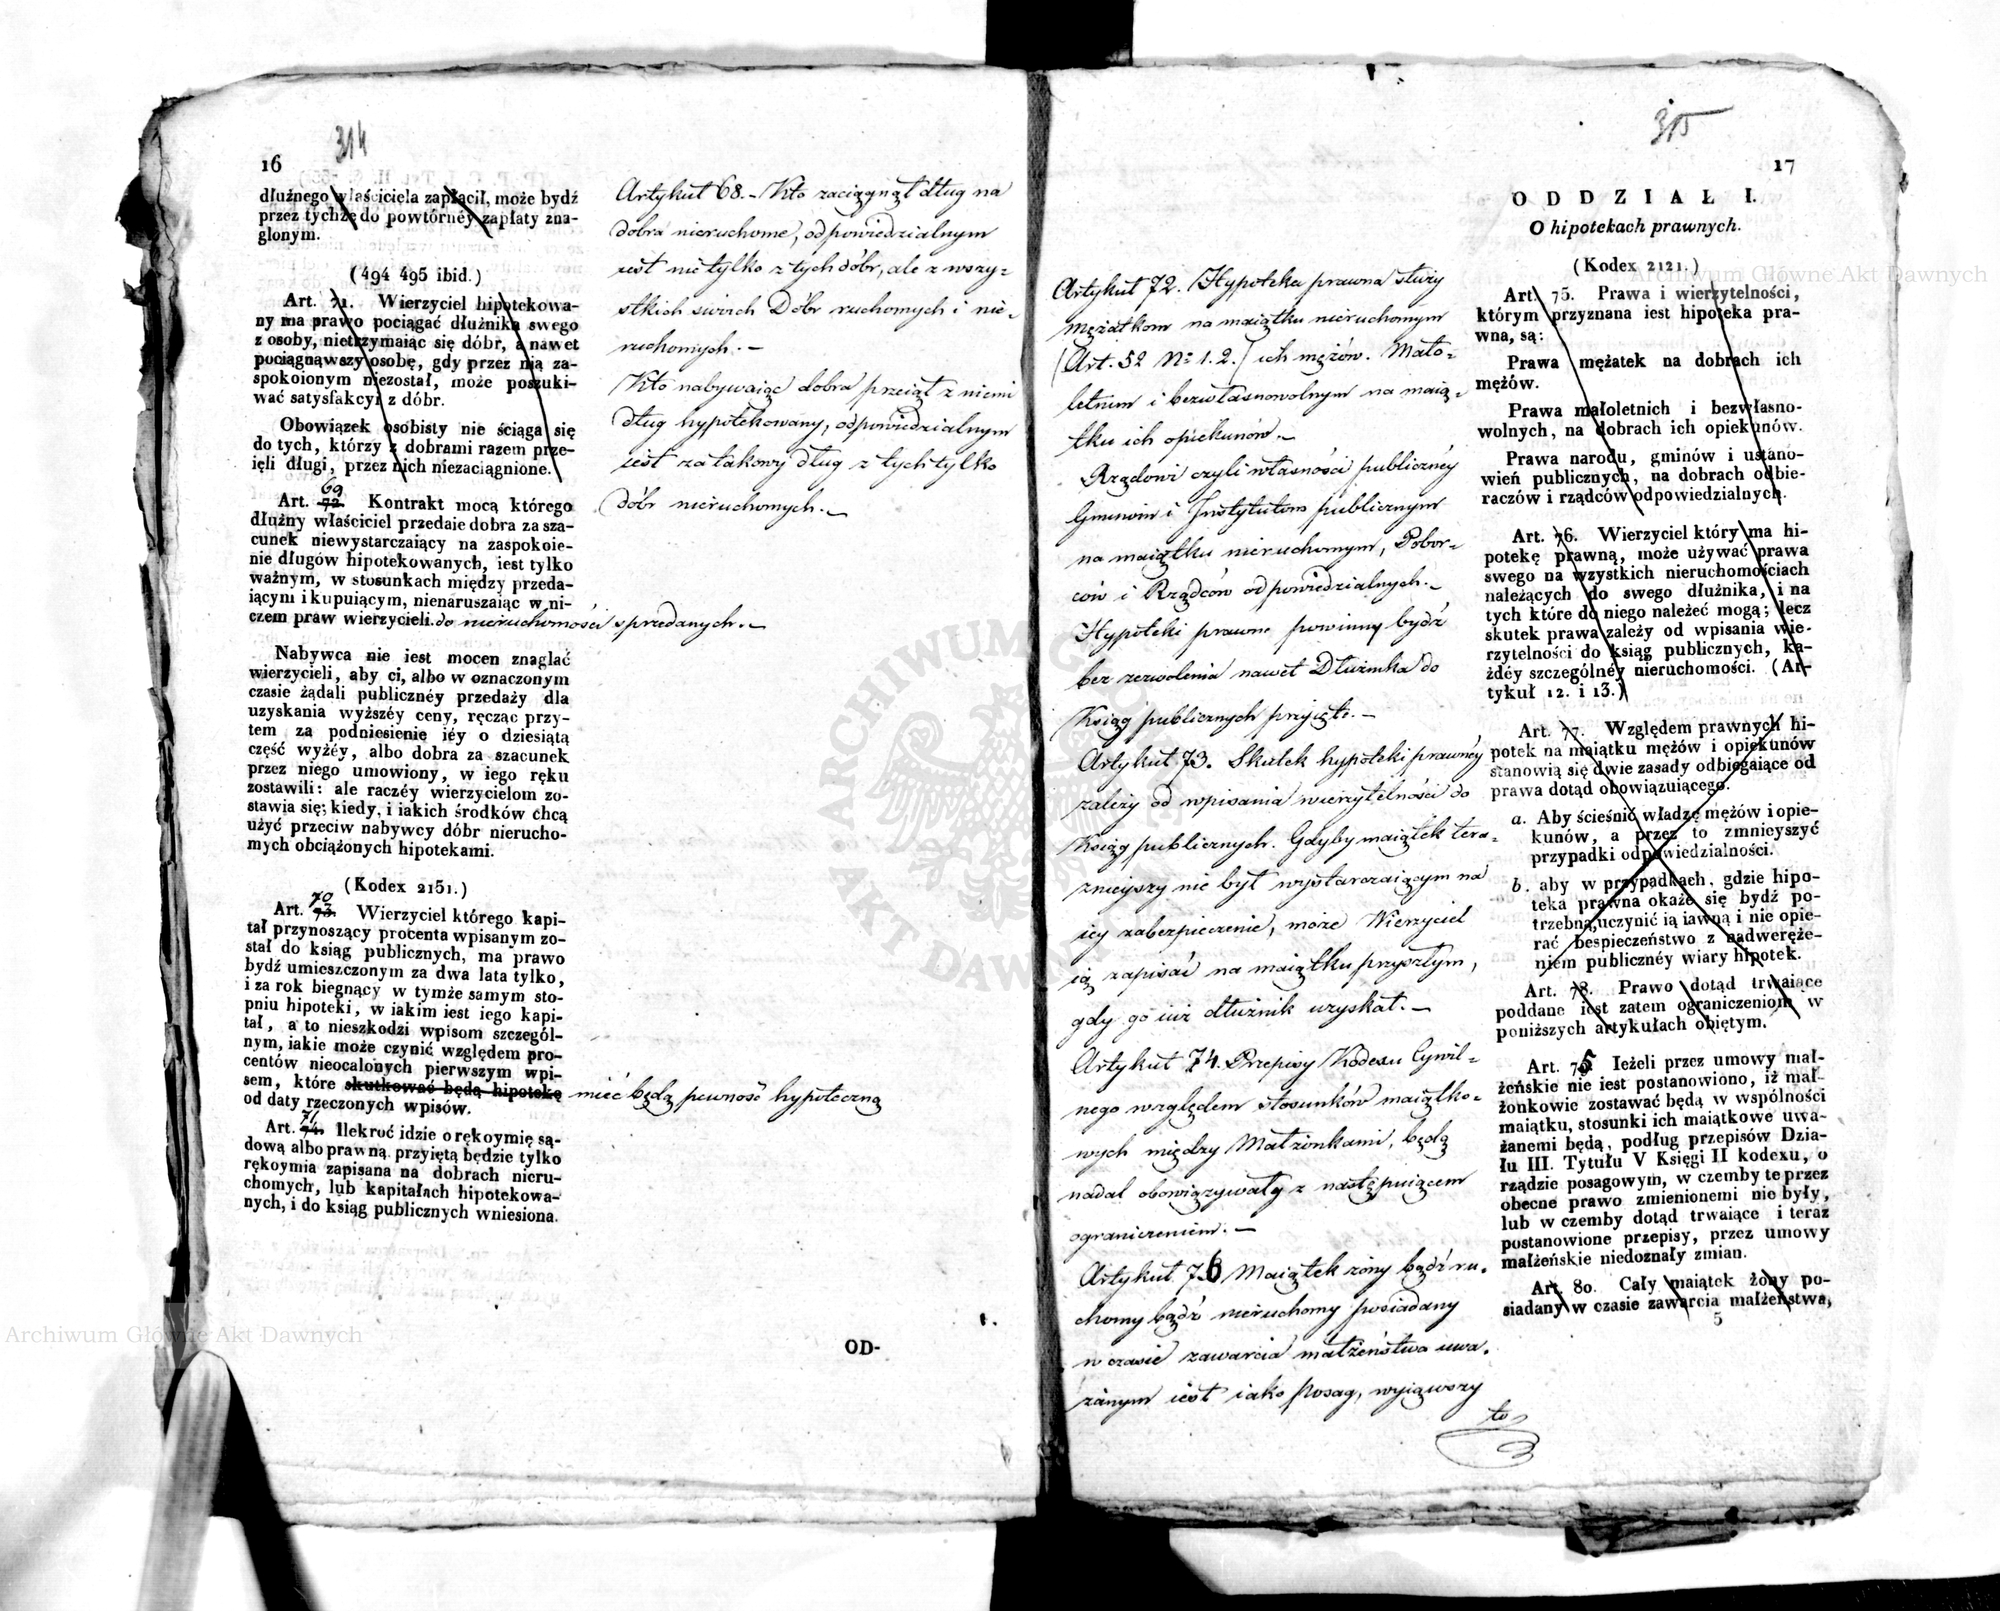 314
16
dłużnego właściciela zapłacił, może bydź
przez tychże do powtórnéy zapłaty zna-
glonym.
(494 495 ibid.)
Art. 71. Wierzyciel hipotekowa-
ny ma prawo pociągać dłużnika swego
z osoby, nietrzymaiąc się dóbr, a nawet
pociągnąwszy osobę, gdy przez nią za-
spokoionym niezostał, może poszuki-
wać satysfakcyi z dóbr.
Obowiązek osobisty nie ściąga się
do tych, którzy z dobrami razem prze-
ięli długi, przez nich niezaciągnione.
69
Art. 72. Kontrakt mocą którego
dłużny właściciel przedaie dobra za sza-
cunek niewystarczaiący na zaspokoie-
nie długów hipotekowanych, iest tylko
ważnym, w stosunkach między przeda-
iącym i kupuiącym, nienaruszaiąc w ni-
czem praw wierzycieli. do nieruchomości sprzedanych. –
Nabywca nie iest mocen znaglać
wierzycieli, aby ci, albo w oznaczonym
czasie żądali publicznéy przedaży dla
uzyskania wyższéy ceny, ręcząc przy-
tem za podniesienie iéy o dziesiątą
część wyżéy, albo dobra za szacunek
przez niego umowiony, w iego ręku
zostawili: ale raczéy wierzycielom zo-
stawia się; kiedy, i iakich środków chcą
użyć przeciw nabywcy dóbr nierucho-
mych obciążonych hipotekami.
(Kodex 2151.)
70
Art. 73. Wierzyciel którego kapi-
tał przynoszący procenta wpisanym zo-
stał do ksiąg publicznych, ma prawo
bydź umieszczonym za dwa lata tylko,
i za rok biegnący w tymże samym sto-
pniu hipoteki, w iakim iest iego kapi-
tał, a to nieszkodzi wpisom szczegól-
nym, iakie może czynić względem pro-
centów nieocalonych pierwszym wpi-
sem, które skutkować będą hipotekę mieć będą pewność hypoteczną
od daty rzeczonych wpisów.
71
Art. 74. Ilekroć idzie o rękoymię są-
dową albo prawną przyiętą będzie tylko
rękoymia zapisana na dobrach nieru-
chomych, lub kapitałach hipotekowa-
nych, i do ksiąg publicznych wniesiona.
Artykuł 68. – Kto zaciągnął dług na
dobra nieruchome, odpowiedzialnym
iest nietylko z tych dóbr, ale z wszy-
stkich swoich Dóbr ruchomych i nie-
ruchomych. –
Kto nabywaiąc dobra przeiął z niemi
dług hypotekowany, odpowiedzialnym
iest za takowy dług z tych tylko
dóbr nieruchomych. –
OD-
315
17
ODDZIAŁ I.
O hipotekach prawnych.
(Kodex 2121.)
Art. 75. Prawa i wierzytelności,
którym przyznana iest hipoteka pra-
wna, są:
Prawa mężatek na dobrach ich
mężów.
Prawa małoletnich i bezwłasno-
wolnych, na dobrach ich opiekunów.
Prawa narodu, gminów i ustano-
wień publicznych, na dobrach odbie-
raczów i rządców odpowiedzialnych.
Art. 76. Wierzyciel który ma hi-
potekę prawną, może używać prawa
swego na wzystkich nieruchomościach
należących do swego dłużnika, i na
tych które do niego należeć mogą; lecz
skutek prawa zależy od wpisania wie-
rzytelności do ksiąg publicznych, ka-
żdéy szczególnéy nieruchomości. (Ar-
tykuł 12. i 13.)
Art. 77. Względem prawnych hi-
potek na maiątku mężów i opiekunów
stanowią się dwie zasady odbiegaiące od
prawa dotąd obowiązuiącego.
a. Aby ścieśnić władzę mężów i opie-
kunów, a przez to zmnieyszyć
przypadki odpowiedzialności.
b. aby w przypadkach, gdzie hipo-
teka prawna okaże się bydź po-
trzebną, uczynić ią iawną i nie opie-
rać bespieczeństwo z nadweręże-
niem publicznéy wiary hipotek.
Art. 78. Prawo dotąd trwaiące
poddane iest zatem ograniczeniom w
poniższych artykułach obiętym.
Art. 75. Ieżeli przez umowy mał-
żeńskie nie iest postanowiono, iż mał-
żonkowie zostawać będą w wspólności
maiątku, stosunki ich maiątkowe uwa-
żanemi będą, podług przepisów Dzia-
łu III. Tytułu V Księgi II kodexu, o
rządzie posagowym, w czemby te przez
obecne prawo zmienionemi nie były,
lub w czemby dotąd trwaiące i teraz
postanowione przepisy, przez umowy
małżeńskie niedoznały zmian.
Art. 80. Cały maiątek żony po-
siadany w czasie zawarcia małżeństwa,
5
Artykuł 72. Hypoteka prawna służy
mężatkom na maiątku nieruchomym
(Art. 52 No 1. 2.) ich mężów. Mało-
letnim i bezwłasnowolnym na maią-
tku ich opiekunów. –
Rządowi czyli własności publicznéy
Gminom i Instytutom publicznym
na maiątku nieruchomym, Pobor-
ców i Rządców odpowiedzialnych. –
Hypoteki prawne powinny bydź
bez zezwolenia nawet Dłużnika do
Ksiąg publicznych przyięte. –
Artykuł 73. Skutek hypoteki prawnéy
zależy od wpisania wierzytelności do
Ksiąg publicznych. Gdyby maiątek tera-
znieyszy nie był wystarczaiącym na
iey zabezpieczenie, może Wierzyciel
ią zapisać na maiątku przyszłym,
gdy go iuż dłużnik uzyskał. –
Artykuł 74. Przepisy Kodexu Cywil-
nego względem stosunków maiątko-
wych między Małżonkami, będą
nadal obowiązywały z następuiącem
ograniczeniem. –
Artykuł 76 Maiątek żony bądź ru-
chomy bądź nieruchomy posiadany
w czasie zawarcia małżeństwa uwa-
żanym iest iako posag, wyiąwszy
to
Archiwum Główne Akt Dawnych
Archiwum Główne Akt Dawnych